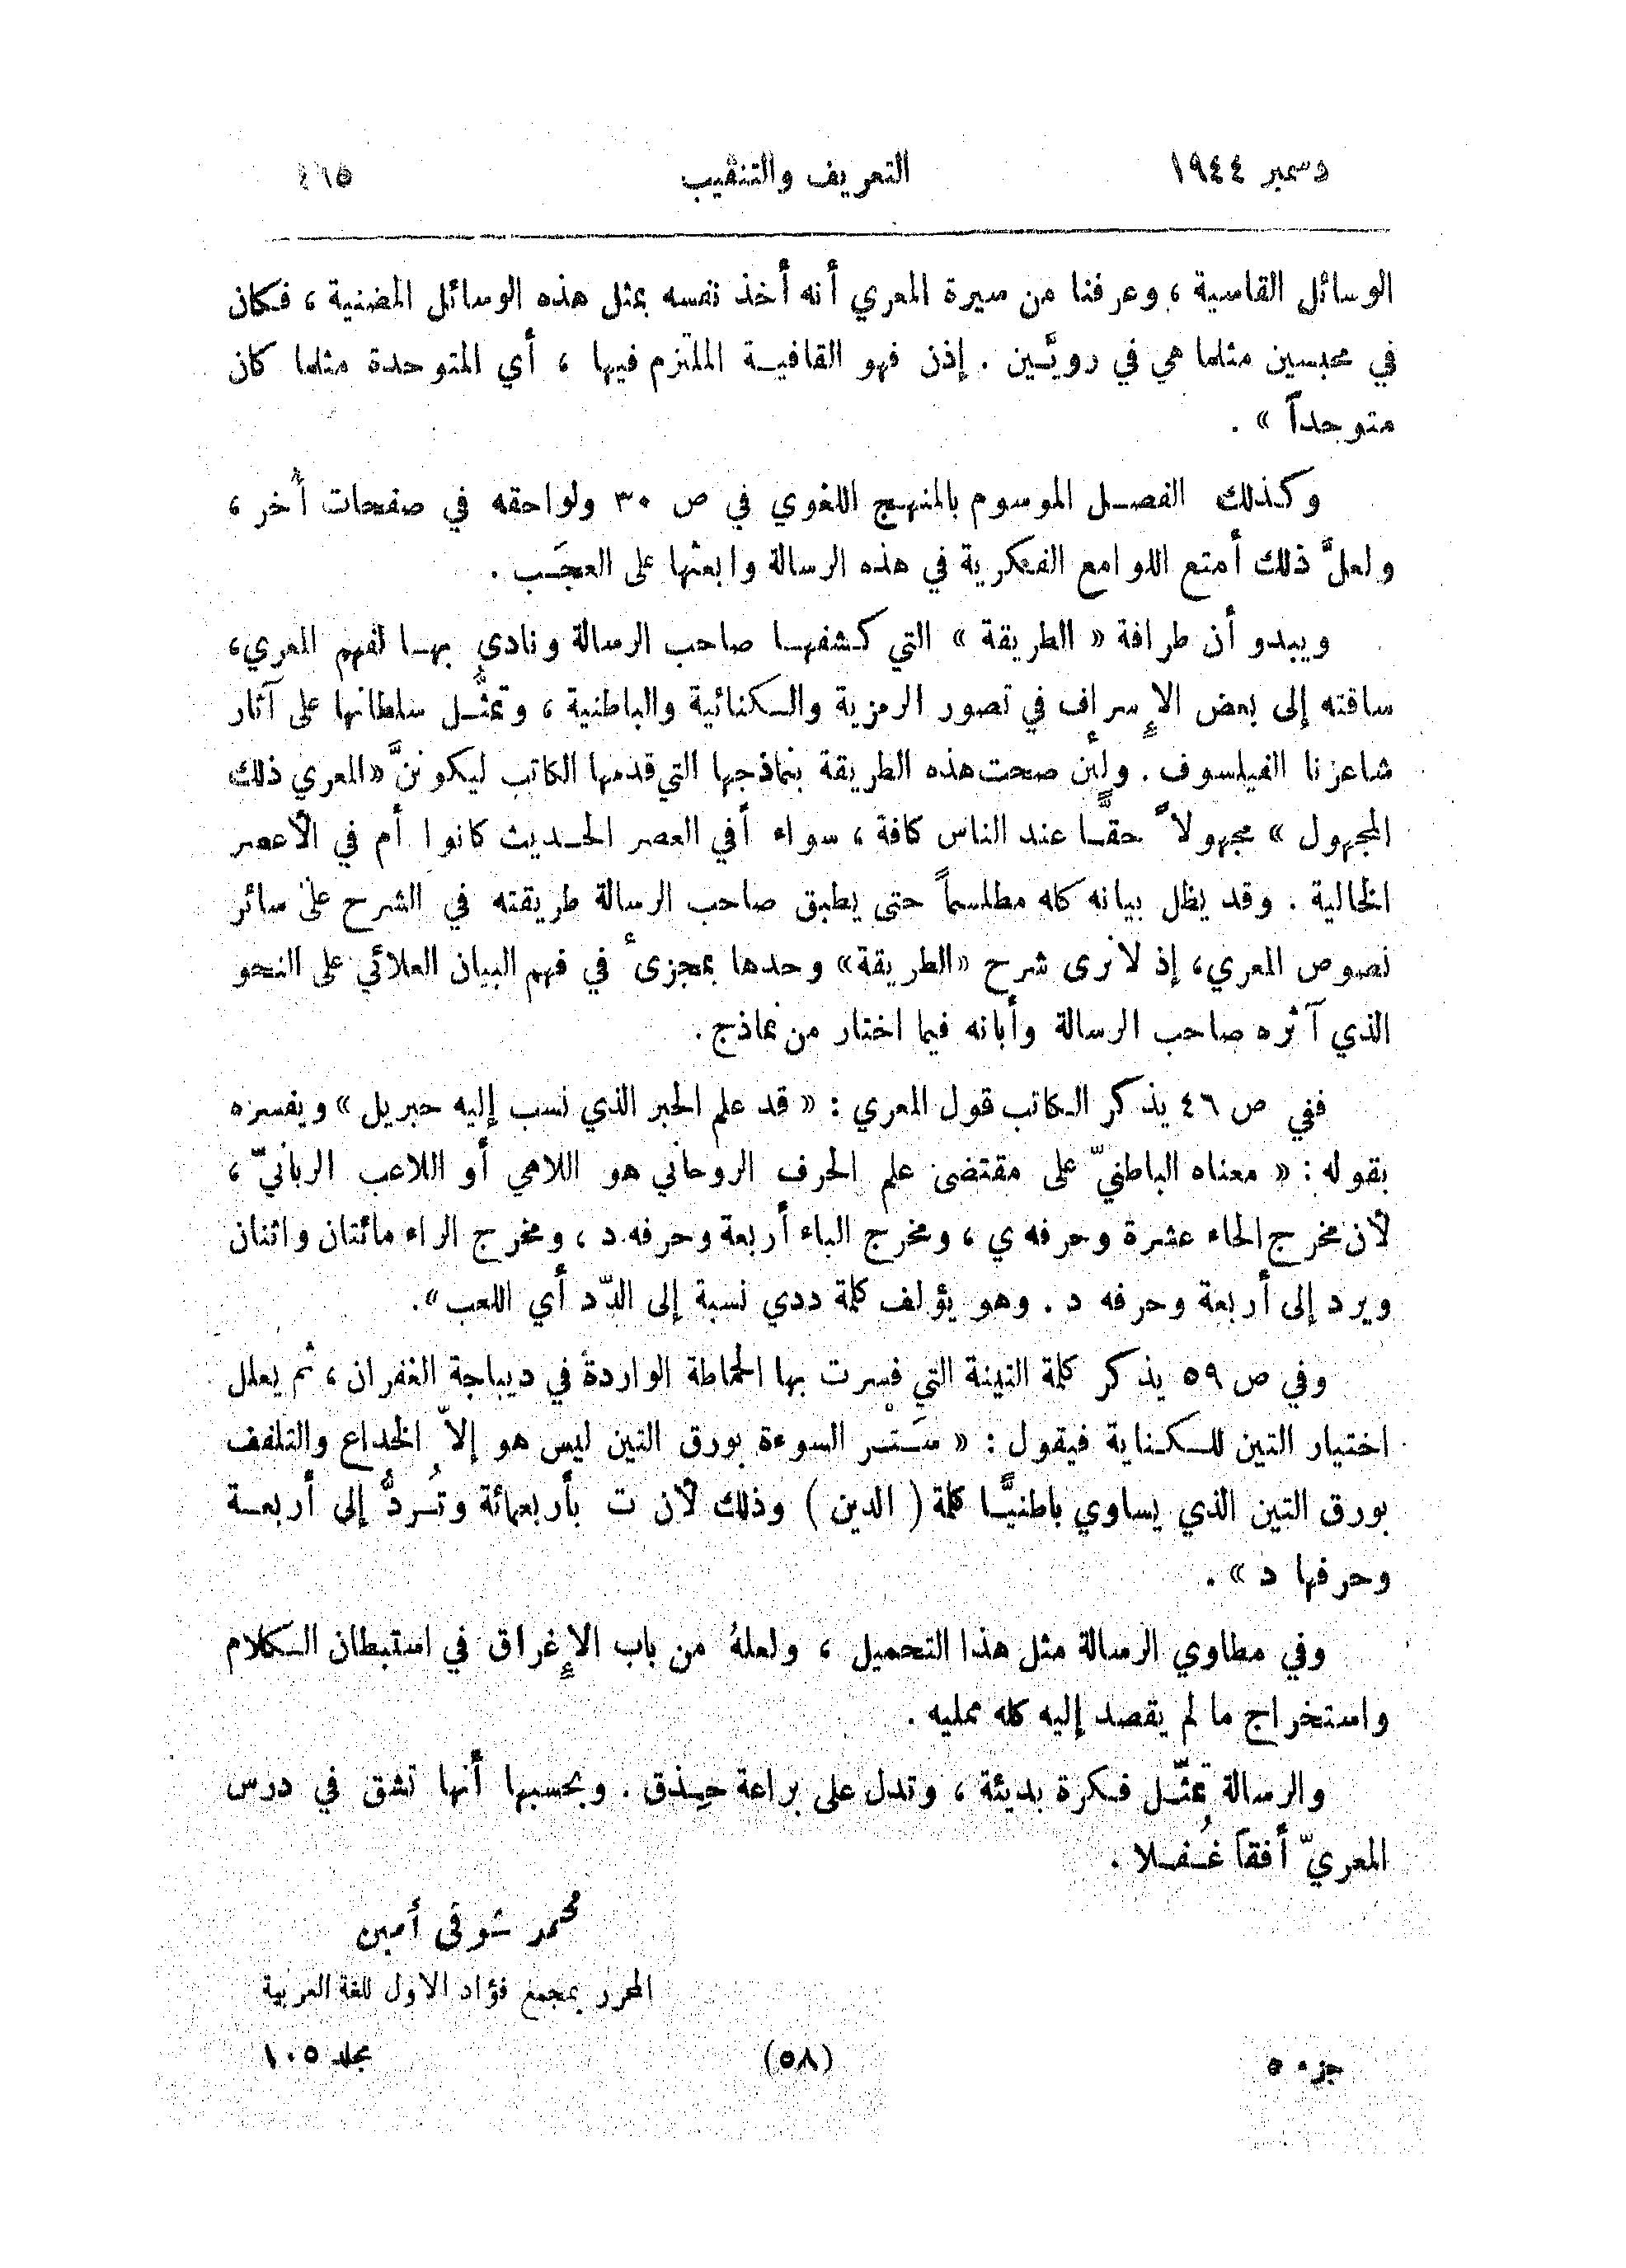 دسمبر ١٩٤٤ التعريف والتنقيب ٤٦٥
الوسائل القاسية ، وعرفنا من سيرة المعري أنه أخذ نفسه بمثل هذه الوسائل المضنية ، فكان
في محبسين مثلما هي في رويَّين . إذن فهو القافية الملتزم فيها ، أي المتوحدة مثلما كان
متوحداً » .
وكذلك الفصل الموسوم بالمنهج اللغوي في ص ٣٠ ولواحقه في صفحات أُخر ،
ولعلَّ ذلك أمتع اللوامع الفكرية في هذه الرسالة وابعثها على العجَب .
ويبدو أن طرافة « الطريقة » التي كشفها صاحب الرسالة ونادى بها لفهم المعري ،
ساقته إلى بعض الإسراف في تصور الرمزية والكنائية والباطنية ، وتمثُّل سلطانها على آثار
شاعرنا الفيلسوف . ولئن صحت هذه الطريقة بنماذجها التي قدمها الكاتب ليكوننَّ «المعري ذلك
المجهول » مجهولاً حقًّا عند الناس كافة ، سواء أفي العصر الحديث كانوا أم في الأعصر
الخالية . وقد يظل بيانه كله مطلسماً حتى يطبق صاحب الرسالة طريقته في الشرح على سائر
نصوص المعري، إذ لا نرى شرح «الطريقة» وحدها بمجزئ في فهم البيان العلائي على النحو
الذي آثره صاحب الرسالة وأبانه فيما اختار من نماذج .
ففي ص ٤٦ يذكر الكاتب قول المعري : « قد علم الحبر الذي نسب إليه حبريل » ويفسره
بقوله : « معناه الباطنيّ على مقتضى علم الحرف الروحاني هو اللاهي أو اللاعب الربانيّ ،
لأن مخرج الحاء عشرة وحرفه ي ، ومخرج الباء أربعة وحرفه د ، ومخرج الراء مائتان واثنان
ويرد إلى أربعة وحرفه د . وهو يؤلف كلمة ددي نسبة إلى الدّد أي اللعب » .
وفي ص ٥٩ يذكر كلمة التينة التي فسرت بها الحماطة الواردة في ديباجة الغفران ، ثم يعلل
اختيار التين للكناية فيقول : « سَتْر السوءة بورق التين ليس هو إلاّ الخداع والتلفف
بورق التين الذي يساوي باطنيًّا كلمة ( الدين ) وذلك لأن ت بأربعمائة وتُردُّ إلى أربعة
وحرفها د » .
وفي مطاوي الرسالة مثل هذا التحميل ، ولعلهُ من باب الإغراق في استبطان الكلام
واستخراج ما لم يقصد إليه كله ممليه .
والرسالة تمثّل فكرة بديئة ، وتدل على براعة حِذق . وبحسبها أنها تشق في درس
المعريّ أفقاً غُفلا .
محمد شوقي أمين
المحرر بمجمع فؤاد الاول للغة العربية
جزء ٥ (٥٨) مجلد ١٠٥